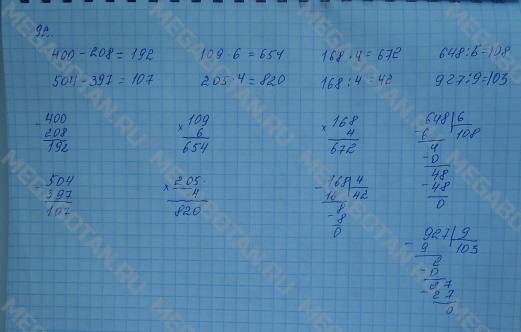 92.
400 - 208 = 192   109 · 6 = 654   168 · 4 = 672   648 : 6 = 108
504 - 397 = 107   205 · 4 = 820   168 : 4 = 42   927 : 9 = 103
- 400
208
192
× 109
6
654
× 168
4
672
648 | 6
- 6   108
4
- 0
48
- 48
0
- 504
397
107
× 205
4
820
- 168 | 4
16   42
8
- 8
0
- 927 | 9
9   103
2
- 0
27
- 27
0
MEGABOTAN.RU